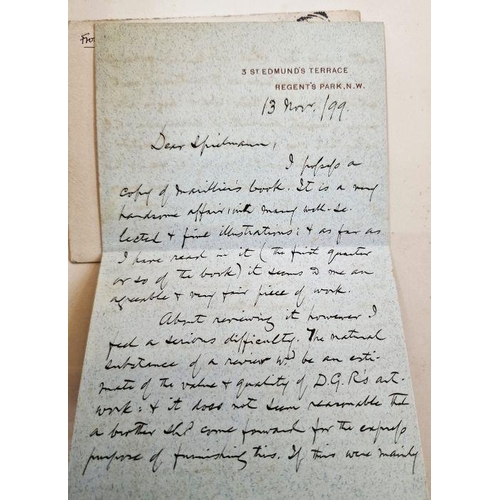 3 ST EDMUND'S TERRACE
REGENT'S PARK, N.W.
13 Nov./99.
Dear Spielmann,
I possess a
copy of Marillier's book. It is a very
handsome affair, with many well-se-
lected & fine illustrations: & as far as
I have read in it (the first quarter
or so of the book) it seems to me an
agreeable & very fair piece of work.
About reviewing it however I
feel a serious difficulty. The natural
substance of a review wd. be an esti-
mate of the value & quality of D.G.R's art-
work: & it does not seem reasonable that
a brother shd. come forward for the express
purpose of furnishing this. If this were mainly